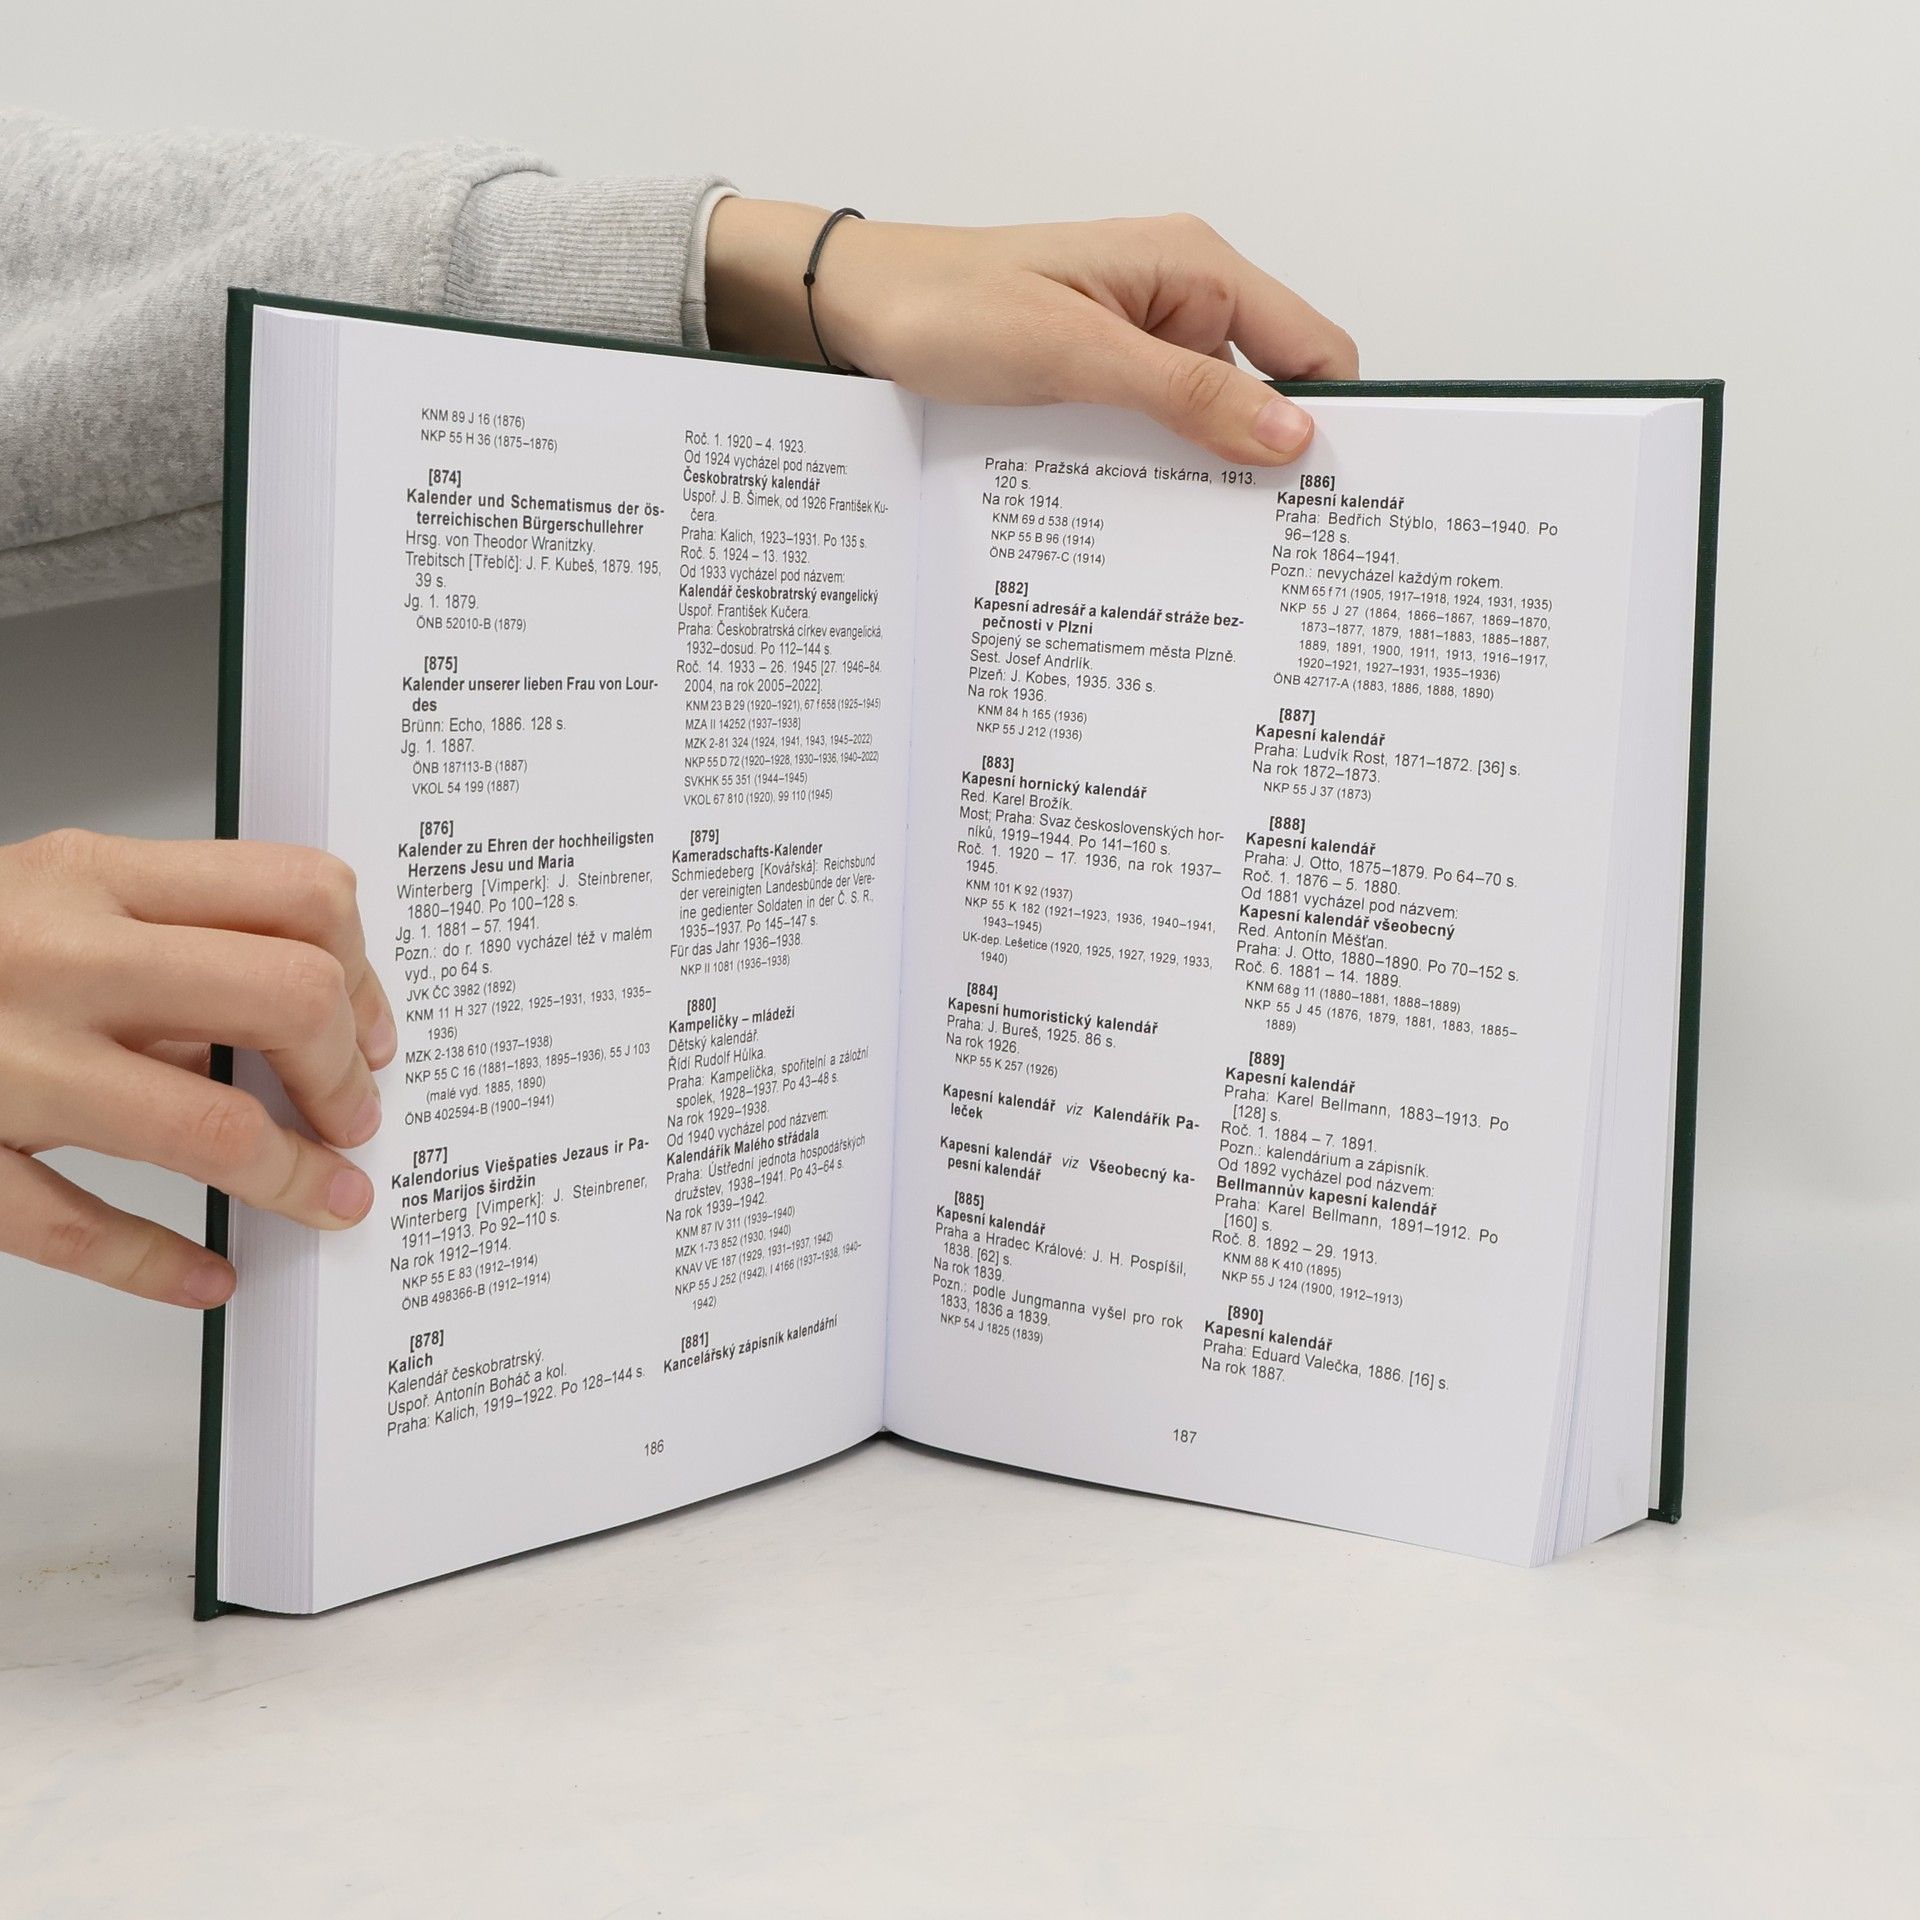 KNM 89 J 16 (1876)
NKP 55 H 36 (1875–1876)
[874]
Kalender und Schematismus der ös-
terreichischen Bürgerschullehrer
Hrsg. von Theodor Wranitzky.
Trebitsch [Třebíč]: J. F. Kubeš, 1879. 195,
39 s.
Jg. 1. 1879.
ÖNB 52010-B (1879)
[875]
Kalender unserer lieben Frau von Lour-
des
Brünn: Echo, 1886. 128 s.
Jg. 1. 1887.
ÖNB 187113-B (1887)
VKOL 54 199 (1887)
[876]
Kalender zu Ehren der hochheiligsten
Herzens Jesu und Maria
Winterberg [Vimperk]: J. Steinbrener,
1880–1940. Po 100–128 s.
Jg. 1. 1881 – 57. 1941.
Pozn.: do r. 1890 vycházel též v malém
vyd., po 64 s.
JVK ČC 3982 (1892)
KNM 11 H 327 (1922, 1925–1931, 1933, 1935–
1936)
MZK 2-138 610 (1937–1938)
NKP 55 C 16 (1881–1893, 1895–1936), 55 J 103
(malé vyd. 1885, 1890)
ÖNB 402594-B (1900–1941)
[877]
Kalendorius Viešpaties Jezaus ir Pa-
nos Marijos širdžin
Winterberg [Vimperk]: J. Steinbrener,
1911–1913. Po 92–110 s.
Na rok 1912–1914.
NKP 55 E 83 (1912–1914)
ÖNB 498366-B (1912–1914)
[878]
Kalich
Kalendář českobratrský.
Uspoř. Antonín Boháč a kol.
Praha: Kalich, 1919–1922. Po 128–144 s.
Roč. 1. 1920 – 4. 1923.
Od 1924 vycházel pod názvem:
Českobratrský kalendář
Uspoř. J. B. Šimek, od 1926 František Ku-
čera.
Praha: Kalich, 1923–1931. Po 135 s.
Roč. 5. 1924 – 13. 1932.
Od 1933 vycházel pod názvem:
Kalendář českobratrský evangelický
Uspoř. František Kučera.
Praha: Českobratrská církev evangelická,
1932–dosud. Po 112–144 s.
Roč. 14. 1933 – 26. 1945 [27. 1946–84.
2004, na rok 2005–2022].
KNM 23 B 29 (1920–1921), 67 f 658 (1925–1945)
MZA II 14252 (1937–1938]
MZK 2-81 324 (1924, 1941, 1943, 1945–2022)
NKP 55 D 72 (1920–1928, 1930–1936, 1940–2022)
SVKHK 55 351 (1944–1945)
VKOL 67 810 (1920), 99 110 (1945)
[879]
Kameradschafts-Kalender
Schmiedeberg [Kovářská]: Reichsbund
der vereinigten Landesbünde der Vere-
ine gedienter Soldaten in der Č. S. R.,
1935–1937. Po 145–147 s.
Für das Jahr 1936–1938.
NKP II 1081 (1936–1938)
[880]
Kampeličky – mládeží
Dětský kalendář.
Řídí Rudolf Hůlka.
Praha: Kampelička, spořitelní a záložní
spolek, 1928–1937. Po 43–48 s.
Na rok 1929–1938.
Od 1940 vycházel pod názvem:
Kalendářík Malého střádala
Praha: Ústřední jednota hospodářských
družstev, 1938–1941. Po 43–64 s.
Na rok 1939–1942.
KNM 87 IV 311 (1939–1940)
MZK 1-73 852 (1930, 1940)
KNAV VE 187 (1929, 1931–1937, 1942)
NKP 55 J 252 (1942), I 4166 (1937–1938, 1940–
1942)
[881]
Kancelářský zápisník kalendářní
186
Praha: Pražská akciová tiskárna, 1913.
120 s.
Na rok 1914.
KNM 69 d 538 (1914)
NKP 55 B 96 (1914)
ÖNB 247967-C (1914)
[882]
Kapesní adresář a kalendář stráže bez-
pečnosti v Plzni
Spojený se schematismem města Plzně.
Sest. Josef Andrlík.
Plzeň: J. Kobes, 1935. 336 s.
Na rok 1936.
KNM 84 h 165 (1936)
NKP 55 J 212 (1936)
[883]
Kapesní hornický kalendář
Red. Karel Brožík.
Most; Praha: Svaz československých hor-
níků, 1919–1944. Po 141–160 s.
Roč. 1. 1920 – 17. 1936, na rok 1937–
1945.
KNM 101 K 92 (1937)
NKP 55 K 182 (1921–1923, 1936, 1940–1941,
1943–1945)
UK-dep. Lešetice (1920, 1925, 1927, 1929, 1933,
1940)
[884]
Kapesní humoristický kalendář
Praha: J. Bureš, 1925. 86 s.
Na rok 1926.
NKP 55 K 257 (1926)
Kapesní kalendář viz Kalendářík Pa-
leček
Kapesní kalendář viz Všeobecný ka-
pesní kalendář
[885]
Kapesní kalendář
Praha a Hradec Králové: J. H. Pospíšil,
1838. [62] s.
Na rok 1839.
Pozn.: podle Jungmanna vyšel pro rok
1833, 1836 a 1839.
NKP 54 J 1825 (1839)
[886]
Kapesní kalendář
Praha: Bedřich Stýblo, 1863–1940. Po
96–128 s.
Na rok 1864–1941.
Pozn.: nevycházel každým rokem.
KNM 65 f 71 (1905, 1917–1918, 1924, 1931, 1935)
NKP 55 J 27 (1864, 1866–1867, 1869–1870,
1873–1877, 1879, 1881–1883, 1885–1887,
1889, 1891, 1900, 1911, 1913, 1916–1917,
1920–1921, 1927–1931, 1935–1936)
ÖNB 42717-A (1883, 1886, 1888, 1890)
[887]
Kapesní kalendář
Praha: Ludvík Rost, 1871–1872. [36] s.
Na rok 1872–1873.
NKP 55 J 37 (1873)
[888]
Kapesní kalendář
Praha: J. Otto, 1875–1879. Po 64–70 s.
Roč. 1. 1876 – 5. 1880.
Od 1881 vycházel pod názvem:
Kapesní kalendář všeobecný
Red. Antonín Měšťan.
Praha: J. Otto, 1880–1890. Po 70–152 s.
Roč. 6. 1881 – 14. 1889.
KNM 68 g 11 (1880–1881, 1888–1889)
NKP 55 J 45 (1876, 1879, 1881, 1883, 1885–
1889)
[889]
Kapesní kalendář
Praha: Karel Bellmann, 1883–1913. Po
[128] s.
Roč. 1. 1884 – 7. 1891.
Pozn.: kalendárium a zápisník.
Od 1892 vycházel pod názvem:
Bellmannův kapesní kalendář
Praha: Karel Bellmann, 1891–1912. Po
[160] s.
Roč. 8. 1892 – 29. 1913.
KNM 88 K 410 (1895)
NKP 55 J 124 (1900, 1912–1913)
[890]
Kapesní kalendář
Praha: Eduard Valečka, 1886. [16] s.
Na rok 1887.
187